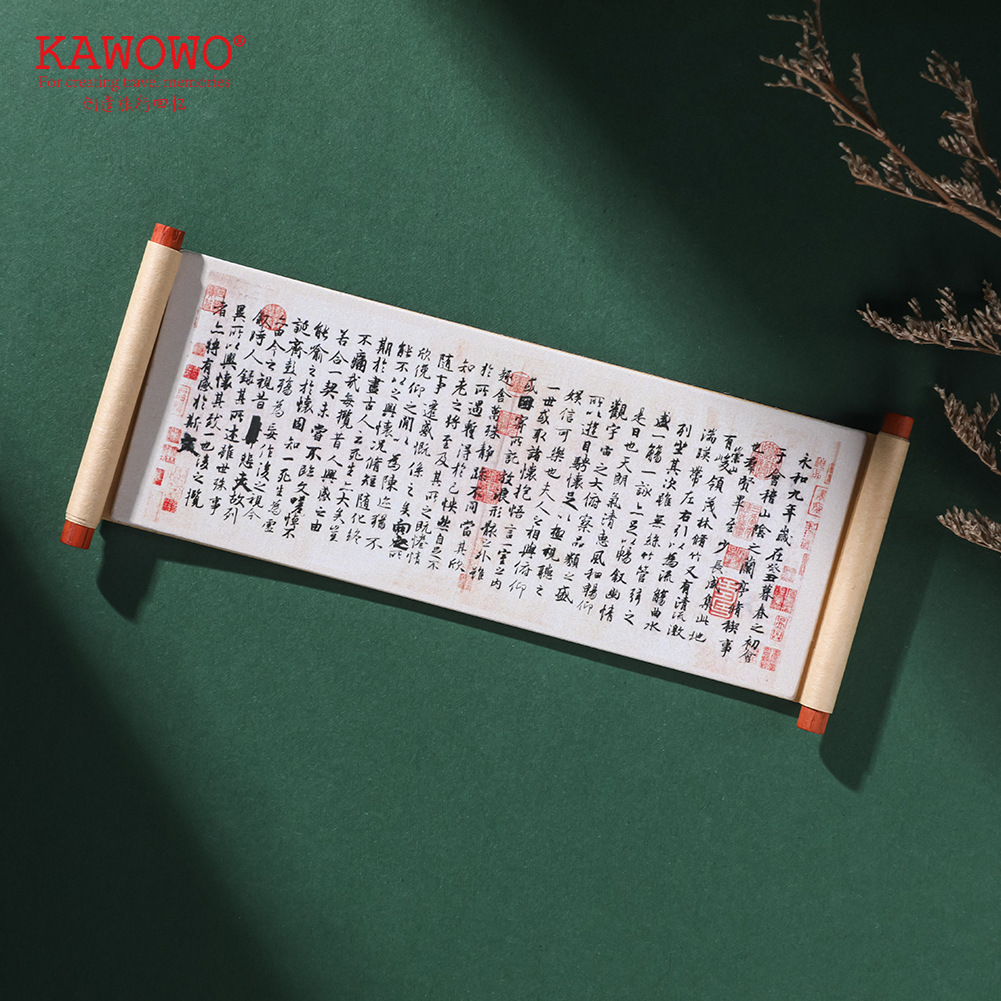 KAWOWO®
For creating travel memories
永和九年歲在癸丑暮春之初會
于會稽山陰之蘭亭脩禊事
也羣賢畢至少長咸集此地
有崇山峻領茂林脩竹又有清流激
湍暎帶左右引以為流觴曲水
列坐其次雖無絲竹管弦之
盛一觴一詠亦足以暢敘幽情
是日也天朗氣清惠風和暢仰
觀宇宙之大俯察品類之盛
所以遊目騁懷足以極視聽之
娛信可樂也夫人之相與俯仰
一世或取諸懷抱悟言一室之內
或因寄所託放浪形骸之外雖
趣舍萬殊靜躁不同當其欣
於所遇蹔得於己怏然自足不
知老之將至及其所之既惓情
隨事遷感慨係之矣向之所
欣俛仰之閒以為陳迹猶不
能不以之興懷況脩短隨化終
期於盡古人云死生亦大矣豈
不痛哉每攬昔人興感之由
若合一契未嘗不臨文嗟悼不
能喻之於懷固知一死生為虛
誕齊彭殤為妄作後之視今
亦由今之視昔悲夫故列
敘時人錄其所述雖世殊事
異所以興懷其致一也後之攬
者亦將有感於斯文